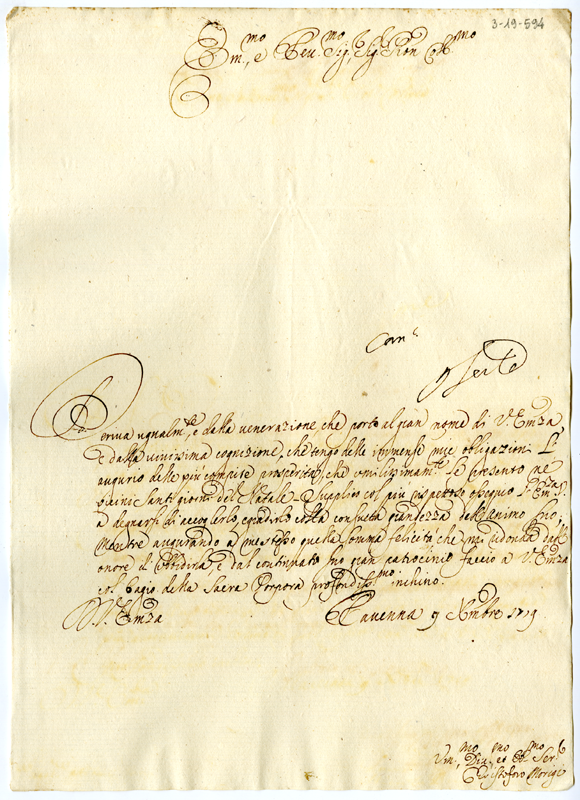 3-19-594
Em.mo e Rev.mo Sig. Sig. Pron Col.mo
Deriva ugualm.te, e dalla venerazione che porto al gran nome di V. Emza,
e dalla vivissima cognizione, che tengo delle immense mie obligazioni L'
augurio delle più compite prosperità, che umilissimam.te Le presento ne
vicini Santi giorni del Natale. Supplico col più rispettoso ossequio V. Emza
a degnarsi di accoglerlo, e gradirlo colla consueta grandezza dell'animo suo,
mentre augurando a me stesso quella somma felicità che mi ridonda dall'
onore d'obbidirla e dal continuato suo gran patrocinio faccio a V. Emza
col bagio della Sacra Porpora profondiss.mo inchino.
D. V. Emza Ravenna 9 Xmbre 1719
Um.mo Div.mo ed Ob.mo Ser.
Cristoforo Morigi